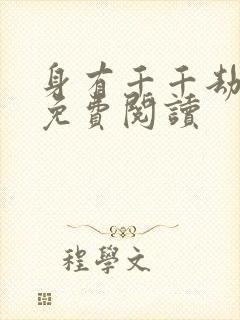 身有千千劫
免費閱讀
程學文